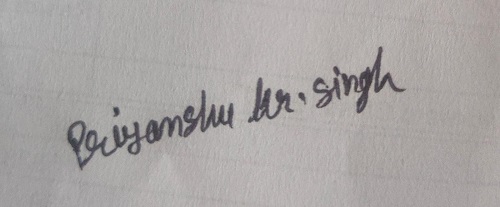 Priyanshu kr. singh